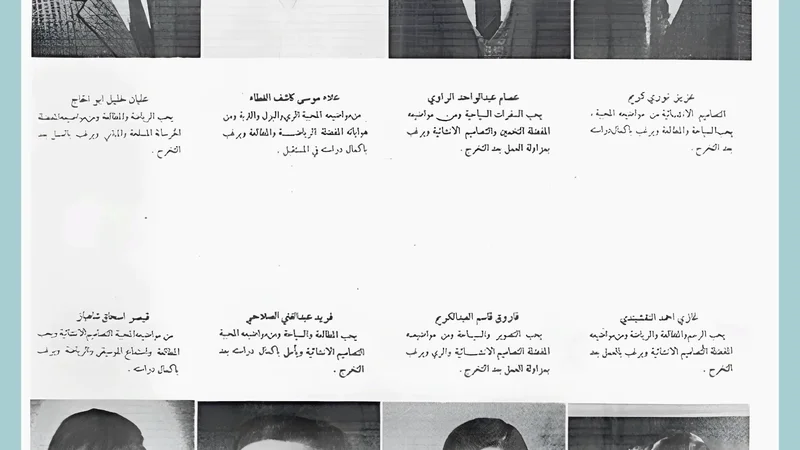 عزيز نوري كريم
التصاميم الانشائية من مواضيعه المحببة ،
يحب السياحة والمطالعة ويرغب باكمال دراسته
بعد التخرج .
عصام عبدالواحد الراوي
يحب السفرات السياحية ومن مواضيعه
المفضلة التخمين والتصاميم الانشائية ويرغب
بمزاولة العمل بعد التخرج .
علاء موسى كاشف الغطاء
من مواضيعه المحببة الري والبزل والتربة ومن
هواياته المفضلة الرياضة والمطالعة ويرغب
باكمال دراسته في المستقبل .
عليان خليل ابو الحاج
يحب الرياضة والمطالعة ومن مواضيعه المفضلة
الخرسانة المسلحة والمباني ويرغب بالعمل بعد
التخرج .
غازي احمد النقشبندي
يحب الرسم والمطالعة والرياضة ومن مواضيعه
المفضلة التصاميم الانشائية ويرغب بالعمل بعد
التخرج .
فاروق قاسم العبدالكريم
يحب التصوير والسياحة ومن مواضيعه
المفضلة التصاميم الانشائية والري ويرغب
بمزاولة العمل بعد التخرج .
فريد عبدالغني الصلاحي
يحب المطالعة والسياحة ومن مواضيعه المحببة
التصاميم الانشائية ويأمل باكمال دراسته بعد
التخرج .
قيصر اسحاق شاهباز
من مواضيعه المحببة التصاميم الانشائية ويحب
المطالعة واستماع الموسيقى والرياضة ويرغب
باكمال دراسته .